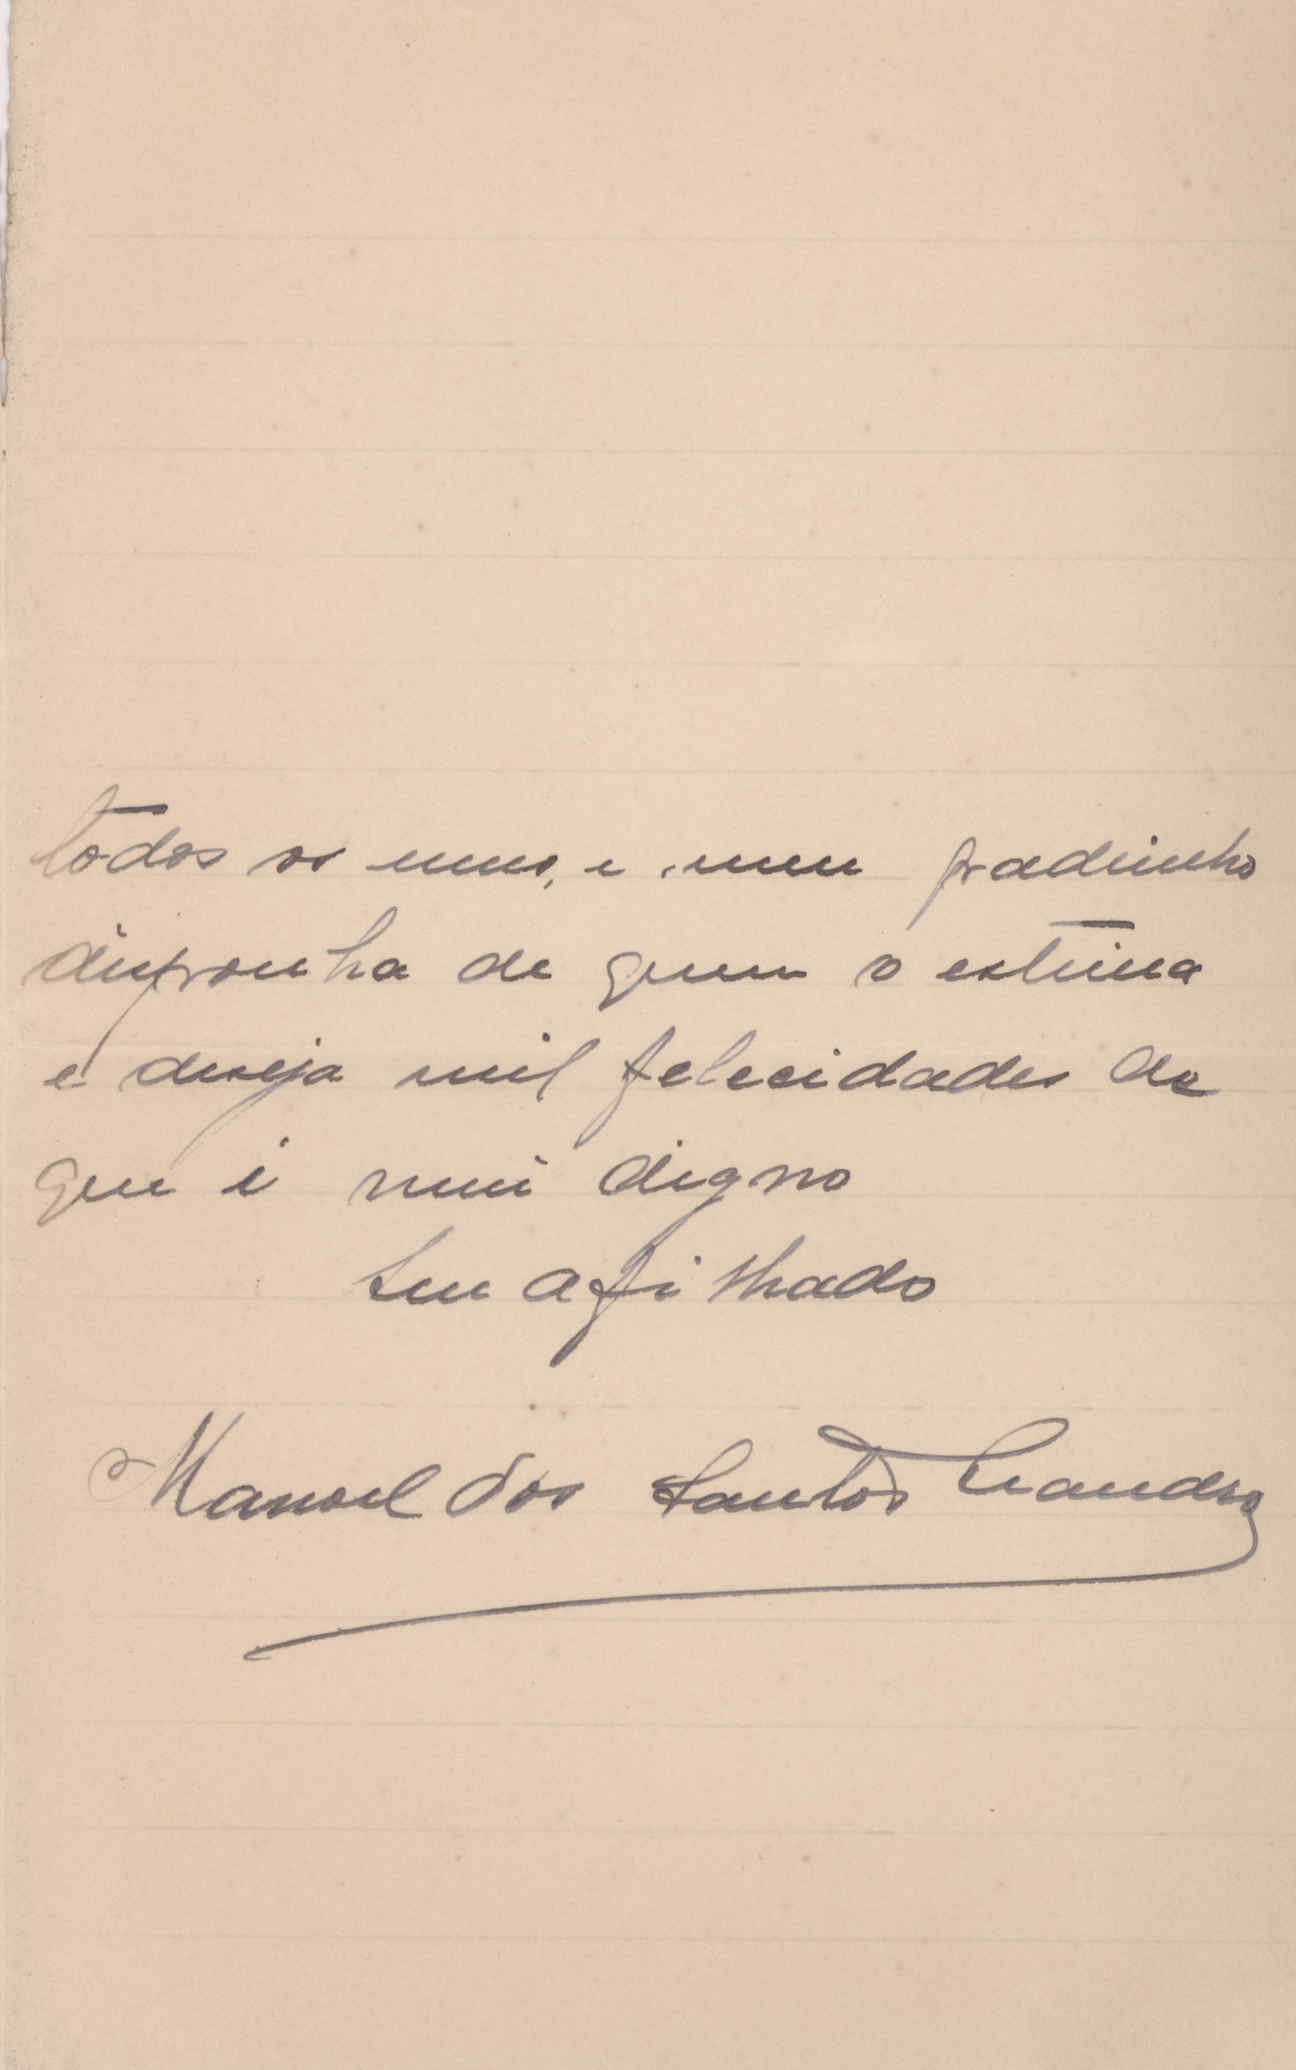 todos os meus, e meu padrinho
disponha de quem o estima
e deseja mil felecidades de
que é mui digno
Seu afilhado
Manoel dos Santos Leandro